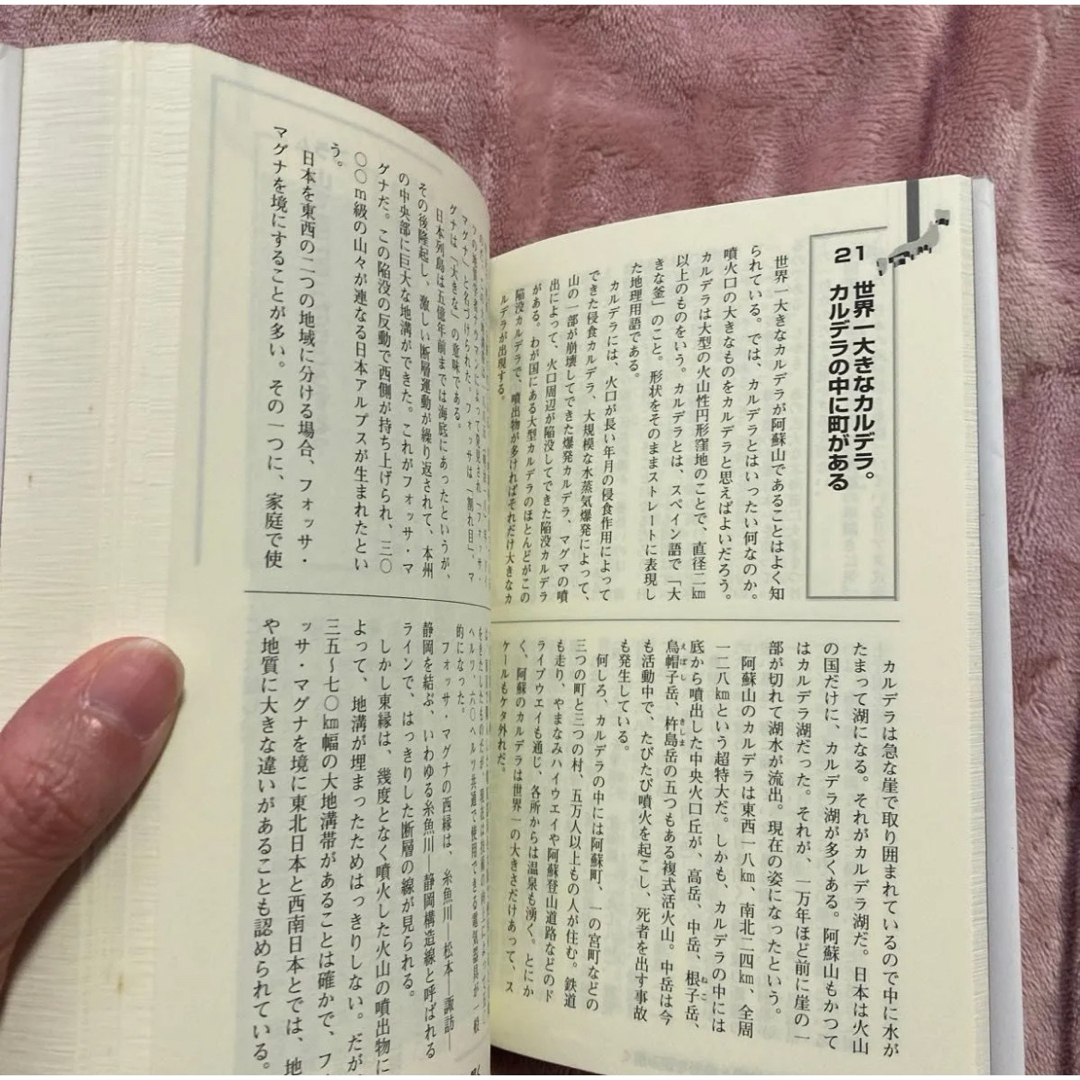 21
世界一大きなカルデラ。
カルデラの中に町がある
世界一大きなカルデラが阿蘇山であることはよく知
られている。では、カルデラとはいったい何なのか。
噴火口の大きなものをカルデラと思えばよいだろう。
カルデラは大型の火山性円形窪地のことで、直径二㎞
以上のものをいう。カルデラとは、スペイン語で「大
きな釜」のこと。形状をそのままストレートに表現し
た地理用語である。
カルデラには、火口が長い年月の侵食作用によって
できた侵食カルデラ、大規模な水蒸気爆発によって、
山の一部が崩壊してできた爆発カルデラ、マグマの噴
出によって、火口周辺が陥没してできた陥没カルデラ
がある。わが国にある大型カルデラのほとんどがこの
陥没カルデラで、噴出物が多ければそれだけ大きなカ
ルデラが出現する。
カルデラは急な崖で取り囲まれているので中に水が
たまって湖になる。それがカルデラ湖だ。日本は火山
の国だけに、カルデラ湖が多くある。阿蘇山もかつて
はカルデラ湖だった。それが、一万年ほど前に崖の一
部が切れて湖水が流出。現在の姿になったという。
阿蘇山のカルデラは東西一八㎞、南北二四㎞、全周
一二八㎞という超特大だ。しかも、カルデラの中には
底から噴出した中央火口丘が、高岳、中岳、根子岳、
烏帽子岳、杵島岳の五つもある複式活火山。中岳は今
も活動中で、たびたび噴火を起こし、死者を出す事故
も発生している。
何しろ、カルデラの中には阿蘇町、一の宮町などの
三つの町と三つの村、五万人以上もの人が住む。鉄道
も走り、やまなみハイウエイや阿蘇登山道路などのド
ライブウエイも通じ、各所からは温泉も湧く。とにか
く、阿蘇のカルデラは世界一の大きさだけあって、ス
ケールもケタ外れだ。
マグナと名づけられた。フォッサは「割れ目」、マ
グナは「大きな」の意味である。
日本列島は五億年前までは海底にあったというが、
その後隆起し、激しい断層運動が繰り返されて、本州
の中央部に巨大な地溝ができた。これがフォッサ・マ
グナだ。この陥没の反動で西側が持ち上げられ、三〇
〇〇m級の山々が連なる日本アルプスが生まれたとい
う。
日本を東西の二つの地域に分ける場合、フォッサ・
マグナを境にすることが多い。その一つに、家庭で使
ヘルツ、六〇ヘルツ共通で使用できる電気器具が一般
的になった。
フォッサ・マグナの西縁は、糸魚川―松本―諏訪―
静岡を結ぶ、いわゆる糸魚川―静岡構造線と呼ばれる
ラインで、はっきりした断層の線が見られる。
しかし東縁は、幾度となく噴火した火山の噴出物に
よって、地溝が埋まったためはっきりしない。だが
三五～七〇㎞幅の大地溝帯があることは確かで、フ
ォッサ・マグナを境に東北日本と西南日本とでは、地
や地質に大きな違いがあることも認められている。